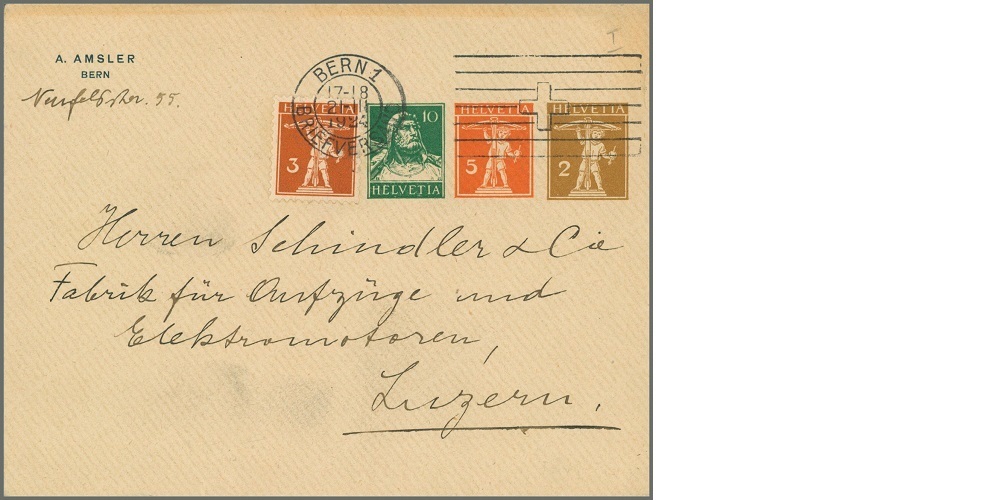 A. AMSLER
BERN
Neufeldstr. 55.
I
BERN 1
17-18
1924
BRIEFVERS
HELVETIA
3
10
HELVETIA
HELVETIA
5
HELVETIA
2
Herren Schindler & Cie
Fabrik für Aufzüge und
Elektromotoren,
Luzern.